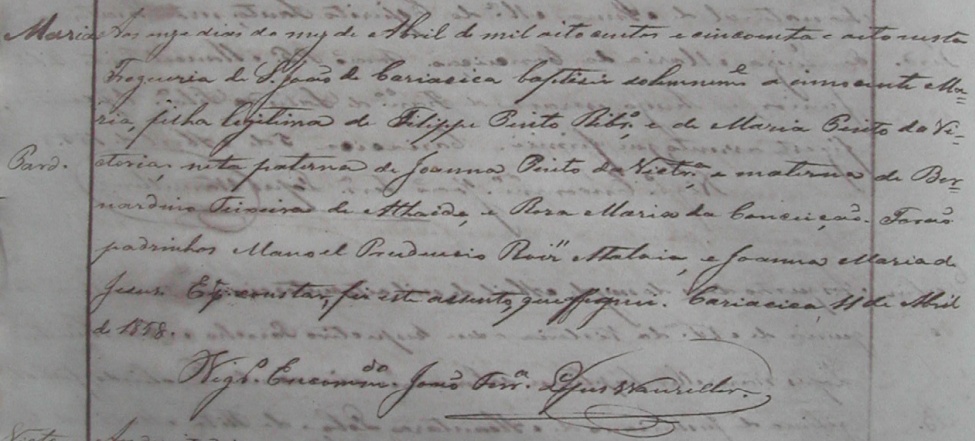 Maria Aos onze dias do mez de Abril de mil oito centos e cincoenta e oito nesta
Fregueria de S. João de Cariacica baptisei solemnem.e a innocente Ma=
ria, filha legitima de Filippe Pinto Ribr.o e de Maria Pinto da Vi=
Pard. ctoria, neta paterna de Joanna Pinto da Victr.a e materna de Ber=
nardino Teixeira de Athaide, e Roza Maria da Conceição. Forão
padrinhos Manoel Prudencio Roiz Malaia, e Joanna Maria de
Jesus. E p.a constar, fiz este assento, que assignei. Cariacica, 11 de Abril
de 1858.
Vigr.o Encomm.do João Ferr.a